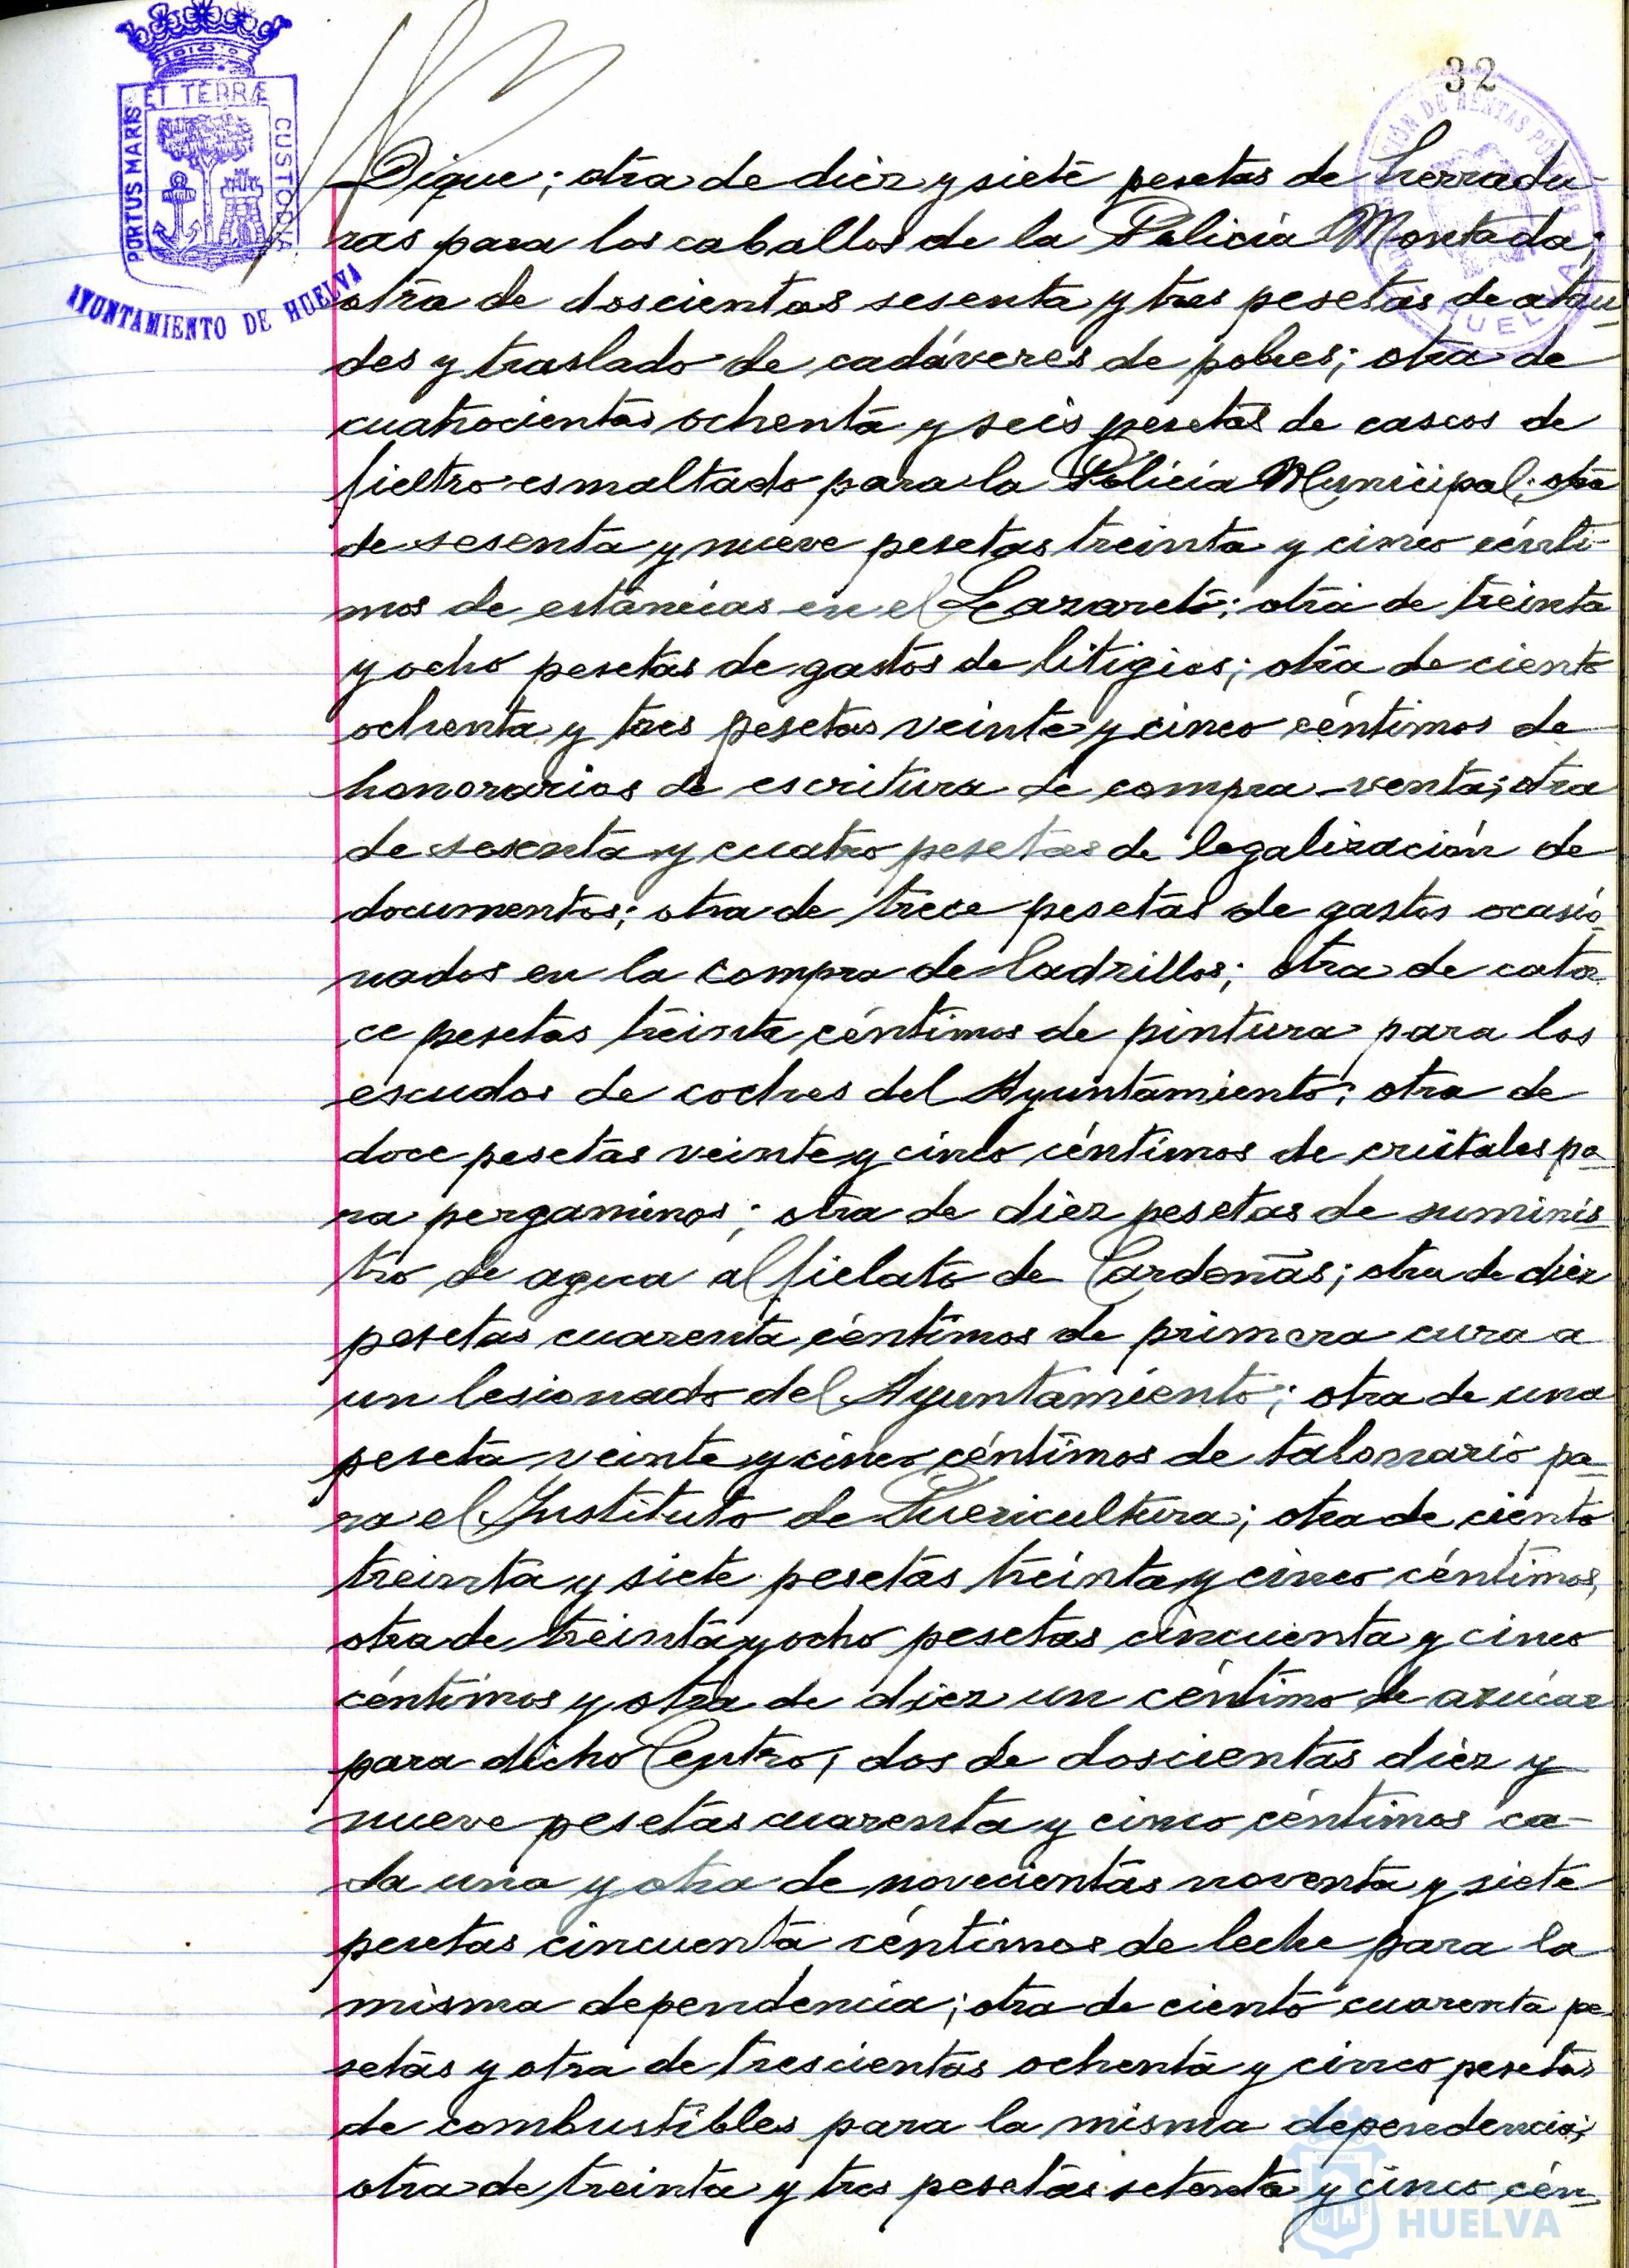 32
PORTUS MARIS ET TERRÆ CUSTODIA
AYUNTAMIENTO DE HUELVA
Dique; otra de diez y siete pesetas de herradu-
ras para los caballos de la Policía Montada;
otra de doscientas sesenta y tres pesetas de atau-
des y traslado de cadáveres de pobres; otra de
cuatrocientas ochenta y seis pesetas de cascos de
fieltro esmaltado para la Policía Municipal; otra
de sesenta y nueve pesetas treinta y cinco cénti-
mos de estancias en el Lazareto; otra de treinta
y ocho pesetas de gastos de litigios; otra de ciento
ochenta y tres pesetas veinte y cinco céntimos de
honorarios de escritura de compra-venta; otra
de sesenta y cuatro pesetas de legalización de
documentos; otra de trece pesetas de gastos ocasio-
nados en la compra de ladrillos; otra de cator-
ce pesetas treinta céntimos de pintura para los
escudos de coches del Ayuntamiento; otra de
doce pesetas veinte y cinco céntimos de cristales pa-
ra pergaminos; otra de diez pesetas de suminis-
tro de agua al fielato de Cardeñas; otra de diez
pesetas cuarenta céntimos de primera cura a
un lesionado del Ayuntamiento; otra de una
peseta veinte y cinco céntimos de talonario pa-
ra el Instituto de Puericultura; otra de ciento
treinta y siete pesetas treinta y cinco céntimos,
otra de treinta y ocho pesetas cincuenta y cinco
céntimos y otra de diez un céntimo de azúcar
para dicho Centro; dos de doscientas diez y
nueve pesetas cuarenta y cinco céntimos ca-
da una y otra de novecientas noventa y siete
pesetas cincuenta céntimos de leche para la
misma dependencia; otra de ciento cuarenta pe-
setas y otra de trescientas ochenta y cinco pesetas
de combustibles para la misma dependencia;
otra de treinta y tres pesetas setenta y cinco cén-
HUELVA